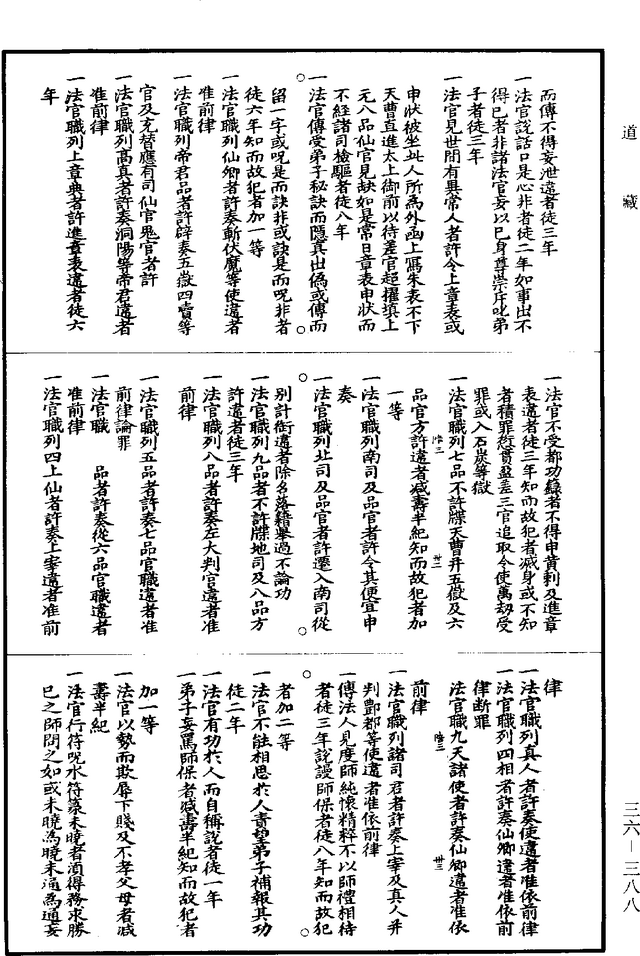 道藏
而傳不得妄泄違者徒三年
一法官說話口是心非者徒二年如事出不
得已者非諸法官妄以已身尊崇斥叱弟
子者徒三年
一法官見世間有異常人者許令上章表或
申狀被坐此人所為外函上寫朱表不下
天曹直進太上御前以待差官超擢填上
元八品仙官見缺如是常日章表申狀而
不經諸司檢驅者徒八年
一法官傳受弟子秘訣而隱真出偽或傳而
留一字或呪是而訣非或訣是而呪非者
徒六年知而故犯者加一等
一法官職列仙卿者許奏斬伏魔等使違者
准前律
一法官職列帝君品者許辟奏五嶽四瀆等
官及充替應有司仙官鬼官者許
一法官職列高真者許奏洞陽等帝君違者
准前律
一法官職列上章典者許進章表違者徒六
年
一法官不受都功籙者不得申黃刺及進章
表違者徒三年知而故犯者滅身或不知
者積罪愆貫盈差三官追取令使萬劫受
罪或入石炭等獄
一法官職列七品不許牒天曹并五嶽及六
品官方許違者減壽半紀知而故犯者加
一等
一法官職列南司及品官者許令其便宜申
奏
一法官職列北司及品官者許遷入南司從
別計銜違者除名落籍舉過不論功
一法官職列九品者不許牒地司及八品方
許違者徒三年
一法官職列八品者許奏左大判官違者准
前律
一法官職列五品者許奏七品官職違者准
前律論罪
一法官職 品者許奏從六品官職違者
准前律
一法官職列四上仙者許奏上宰違者准前
律
一法官職列真人者許奏使違者准依前律
一法官職列四相者許奏仙卿違者准依前
律斷罪
法官職九天諸使者許奏仙卿違者准依
前律
一法官職列諸司君者許奏上宰及真人并
判酆都等使違者准依前律
一傳法人見度師純懷精粹不以師禮相待
者徒三年說謾師保者徒八年知而故犯
者加二等
一法官不能相思於人責望弟子補報其功
徒二年
一法官有功於人而自稱說者徒一年
一弟子妄罵師保者減壽半紀知而故犯者
加一等
一法官以勢而欺辱下賤及不孝父母者減
壽半紀
一法官行符呪水符篆未曉者須得務求勝
已之師問之如或未曉為曉未通為通妄
三六—三八八